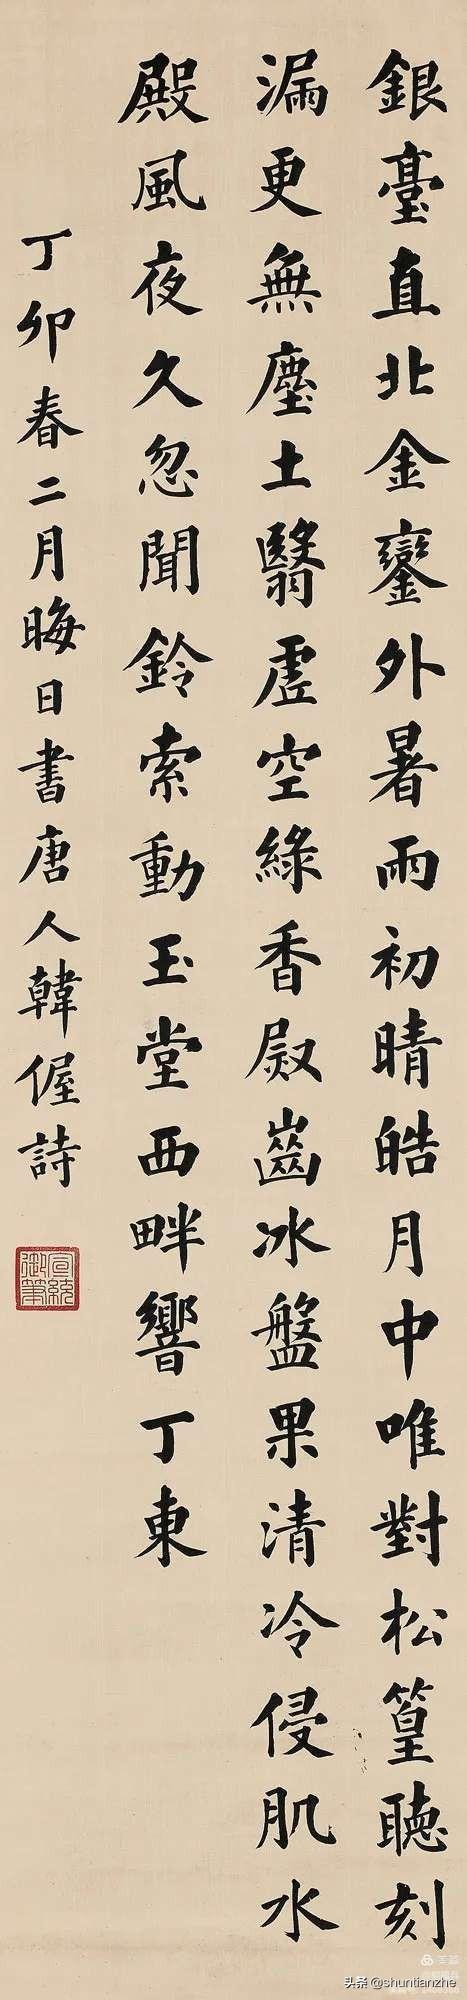 銀臺直北金鑾外暑雨初晴皓月中唯對松篁聽刻
漏更無塵土翳虛空綠香殿齒冰盤果清冷侵肌水
殿風夜久忽聞鈴索動玉堂西畔響丁東
丁卯春二月晦日書唐人韓偓詩
宣統御筆
美篇
头条 @shuntianzhe